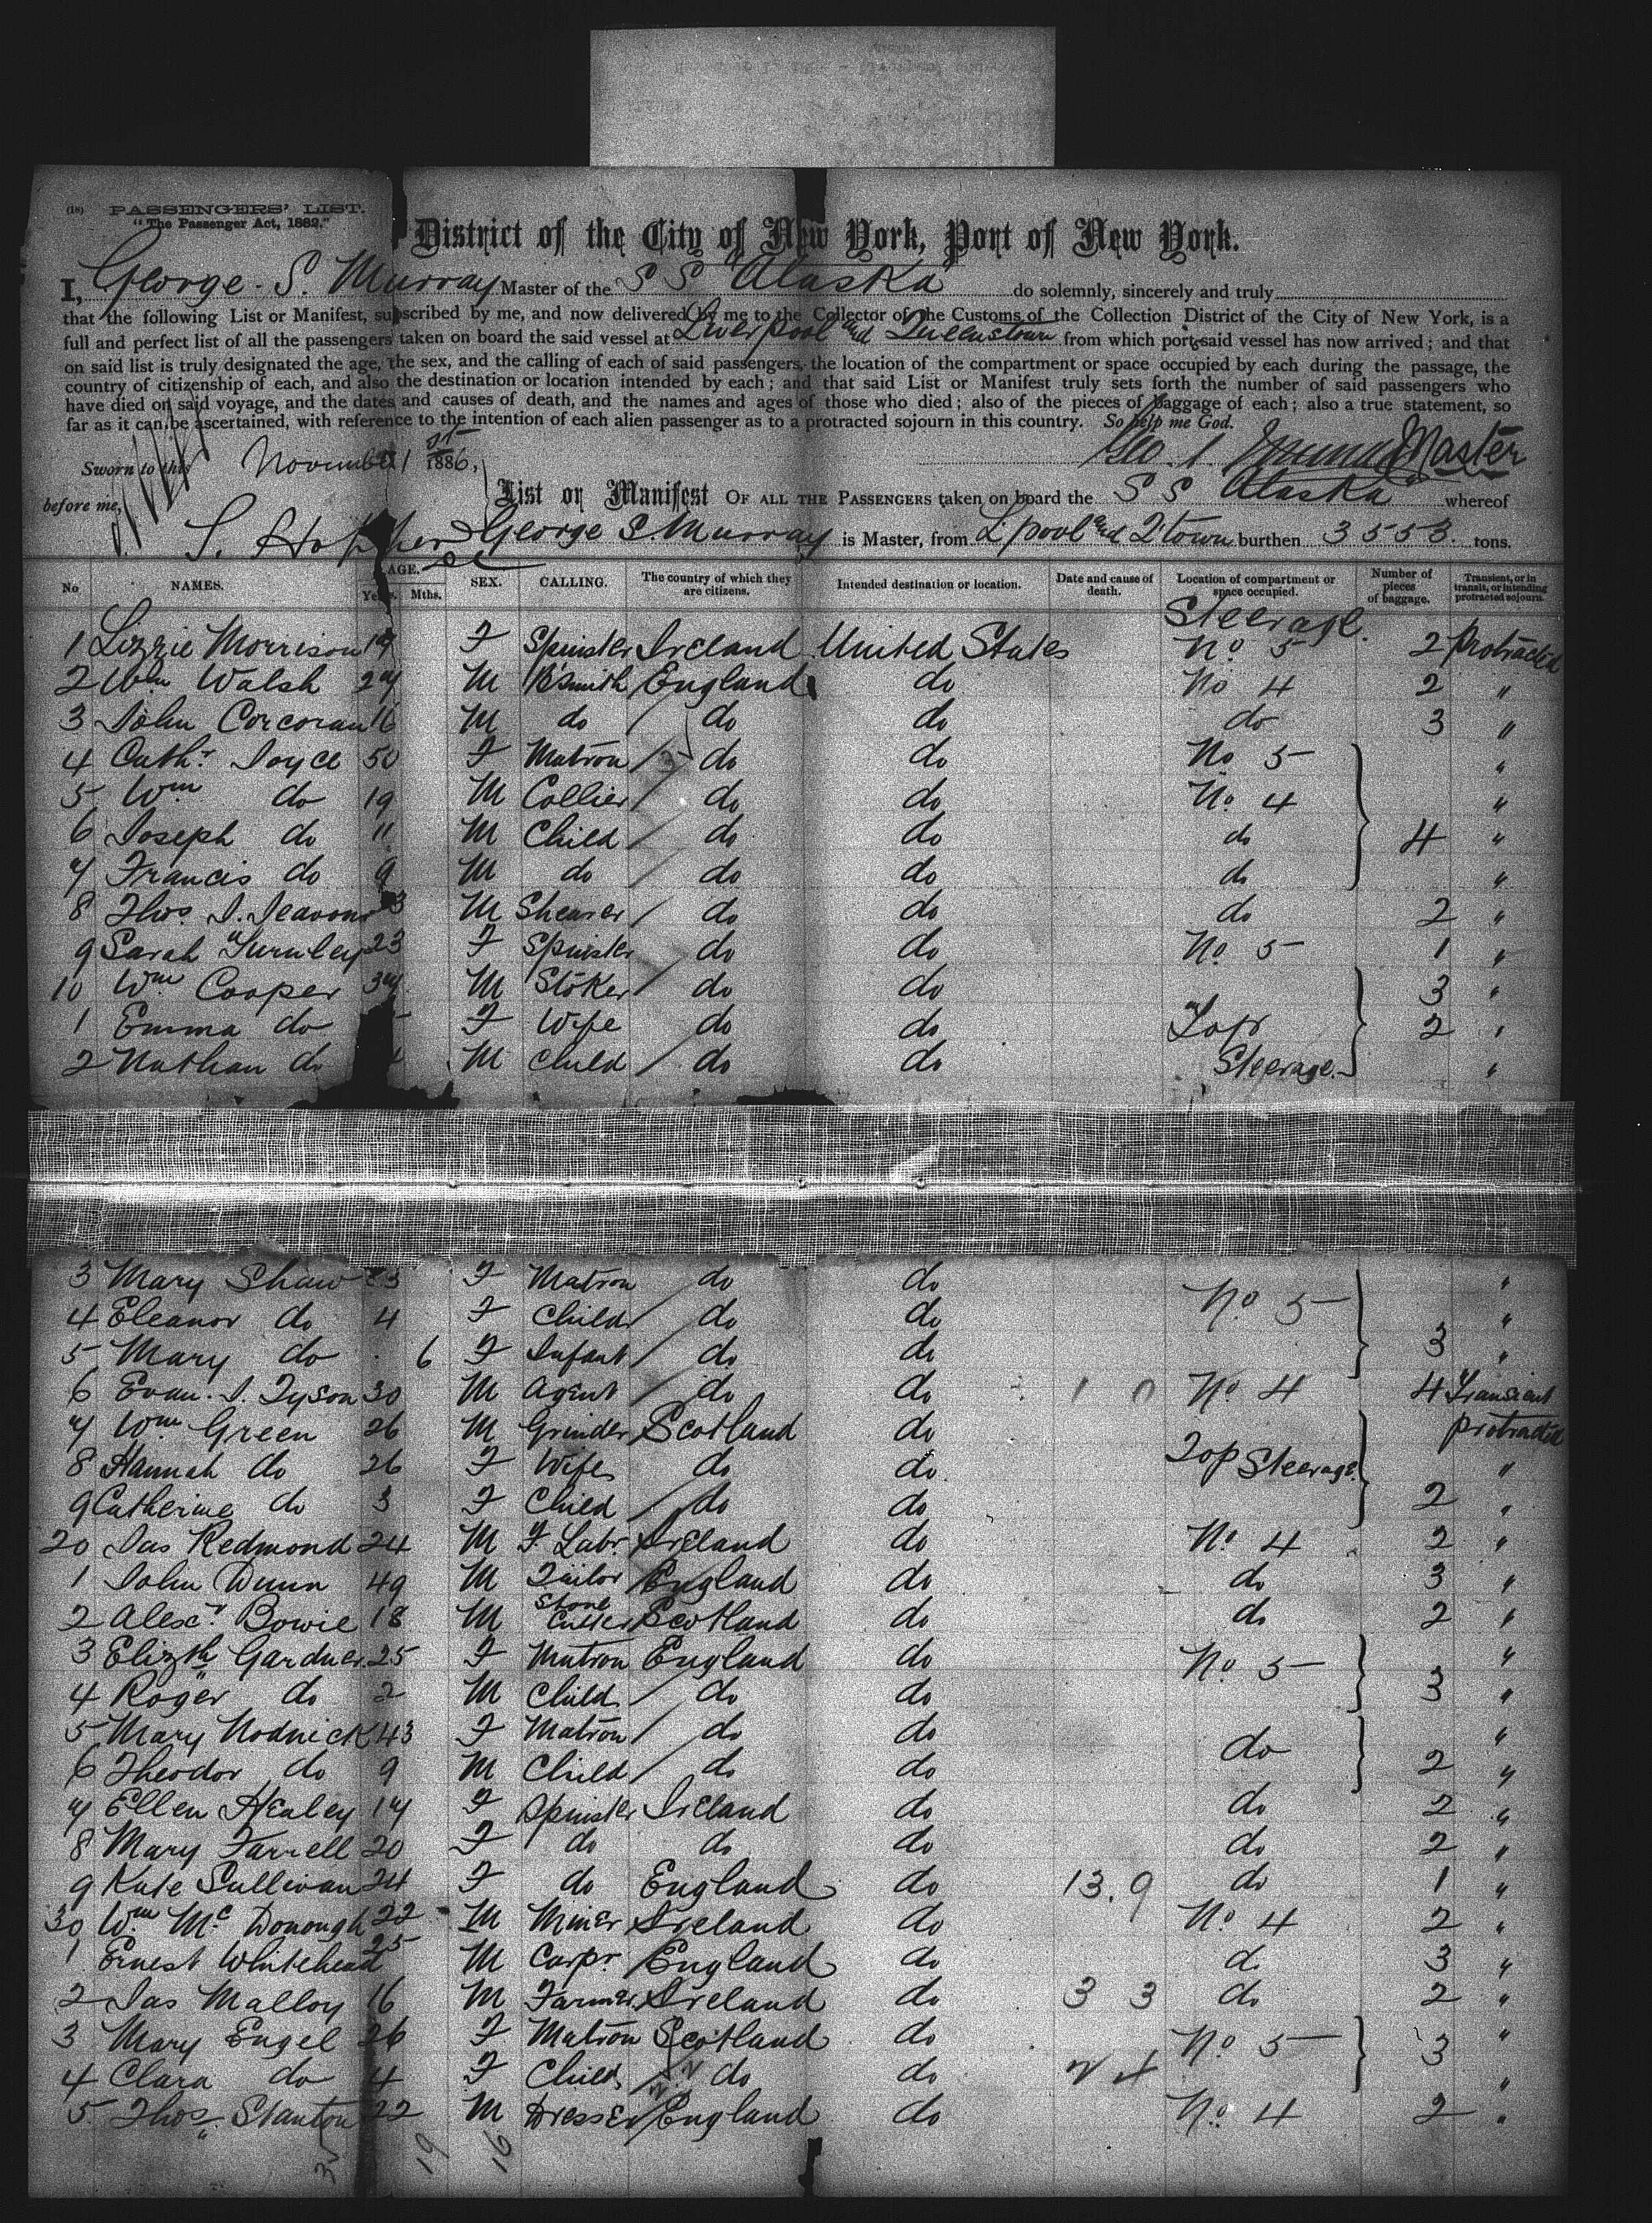 (18) PASSENGERS' LIST.
"The Passenger Act, 1882."
District of the City of New York, Port of New York.
I, George. S. Murray Master of the S S "Alaska" do solemnly, sincerely and truly
that the following List or Manifest, subscribed by me, and now delivered by me to the Collector of the Customs of the Collection District of the City of New York, is a
full and perfect list of all the passengers taken on board the said vessel at Liverpool and Queenstown from which port said vessel has now arrived; and that
on said list is truly designated the age, the sex, and the calling of each of said passengers, the location of the compartment or space occupied by each during the passage, the
country of citizenship of each, and also the destination or location intended by each; and that said List or Manifest truly sets forth the number of said passengers who
have died on said voyage, and the dates and causes of death, and the names and ages of those who died; also of the pieces of baggage of each; also a true statement, so
far as it can be ascertained, with reference to the intention of each alien passenger as to a protracted sojourn in this country. So help me God.
Sworn to this November 1st 1886, Geo. S. Murray Master
before me, List or Manifest OF ALL THE PASSENGERS taken on board the S S "Alaska" whereof
George S. Murray is Master, from L'pool and Q'town burthen 3553. tons.
No NAMES. AGE. Years. Mths. SEX. CALLING. The country of which they are citizens. Intended destination or location. Date and cause of death. Location of compartment or space occupied. Number of pieces of baggage. Transient, or in transit, or intending protracted sojourn.
Steerage.
1 Lizzie Morrison 17 F Spinster Ireland United States No 5 2 Protracted
2 Wm Walsh 27 M B'Smith England do No 4 2 "
3 John Corcoran 16 M do do do do 3 "
4 Cath. Joyce 50 F Matron do do No 5 "
5 Wm do 19 M Collier do do No 4 "
6 Joseph do 11 M Child do do do 4 "
7 Francis do 9 M do do do do "
8 Thos J. Jeavons M Shearer do do do 2 "
9 Sarah Turnley 23 F Spinster do do No 5 1 "
10 Wm Cooper 37 M Stoker do do 3 "
1 Emma do F Wife do do Top 2 "
2 Nathan do M Child do do Steerage. "
3 Mary Shaw F Matron do do No 5 "
4 Eleanor do 4 F Child do do "
5 Mary do 6 F Infant do do 3 "
6 Evan. J. Tyson 30 M Agent do do 1 0 No 4 4 Transient
7 Wm Green 26 M Grinder Scotland do Protracted
8 Hannah do 26 F Wife do do Top Steerage "
9 Catherine do 3 F Child do do 2 "
20 Jas Redmond 24 M F. Labr. Ireland do No 4 2 "
1 John Dunn 49 M Tailor England do do 3 "
2 Alexr Bowie 18 M Stone Cutter Scotland do do 2 "
3 Elizth Gardner 25 F Matron England do No 5 "
4 Roger do 2 M Child do do 3 "
5 Mary Nodnick 43 F Matron do do do "
6 Theodor do 9 M Child do do 2 "
7 Ellen Healey 17 F Spinster Ireland do do 2 "
8 Mary Farrell 20 F do do do do 2 "
9 Kate Sullivan 24 F do England do 13. 9 do 1 "
30 Wm McDonough 22 M Miner Ireland do No 4 2 "
1 Ernest Whitehead 25 M Carpr. England do do 3 "
2 Jas Malloy 16 M Farmer Ireland do 3 3 do 2 "
3 Mary Engel 26 F Matron Scotland do No 5 3 "
4 Clara do 4 F Child do do "
5 Thos. Stanton 22 M Dresser England do No. 4 2 "
19 16